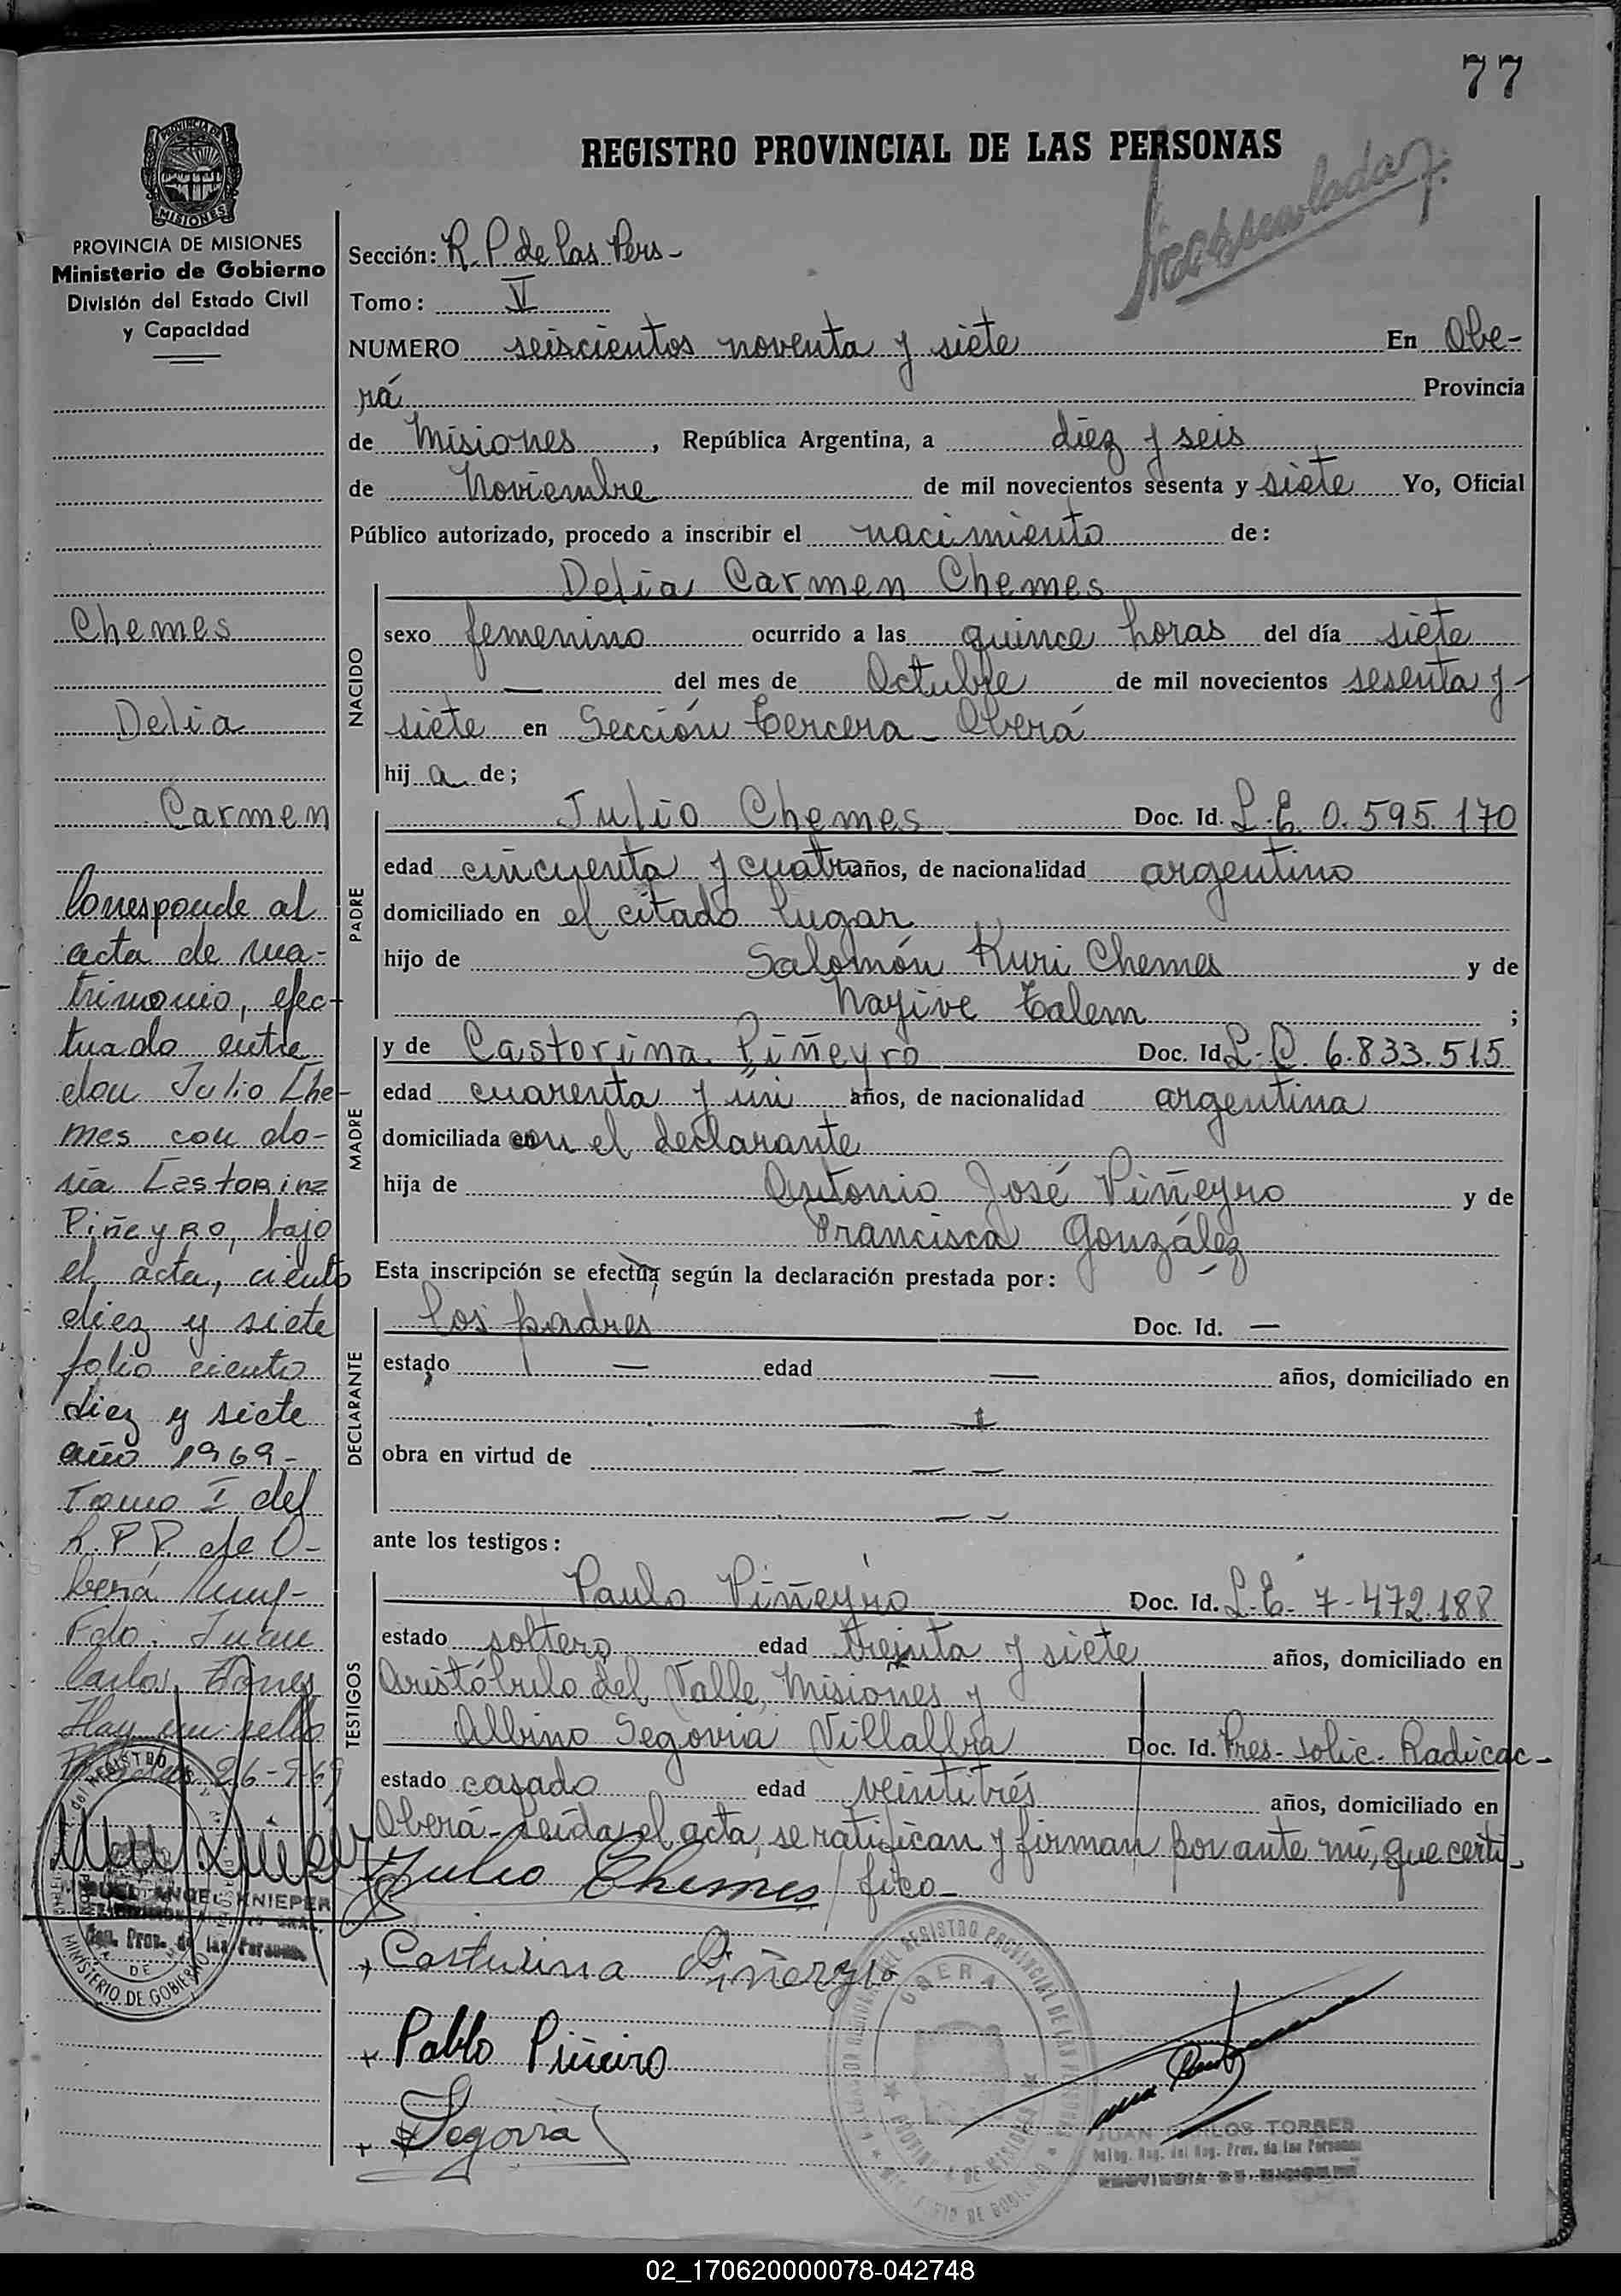 77
REGISTRO PROVINCIAL DE LAS PERSONAS
PROVINCIA DE
MISIONES
PROVINCIA DE MISIONES
Ministerio de Gobierno
División del Estado Civil
y Capacidad
Chemes
Delia
Carmen
Corresponde al
acta de ma-
trimonio, efec-
tuado entre
don Julio Che-
mes con do-
ña Castorina
Piñeyro, bajo
el acta, ciento
diez y siete
folio ciento
diez y siete
año 1969-
Tomo I del
R.P.P. de O-
berá
Fdo: Juan
Carlos Torres
Hay un sello
26-9-69
MINISTERIO DE GOBIERNO
Sección: R. P. de las Pers-
Tomo: V
NUMERO seiscientos noventa y siete En Obe-
rá Provincia
de Misiones, República Argentina, a diez y seis
de Noviembre de mil novecientos sesenta y siete Yo, Oficial
Público autorizado, procedo a inscribir el nacimiento de:
NACIDO
Delia Carmen Chemes
sexo femenino ocurrido a las quince horas del día siete
— del mes de Octubre de mil novecientos sesenta y
siete en Sección tercera - Oberá
hij a de;
PADRE
Julio Chemes Doc. Id. L.E. 0.595.170
edad cincuenta y cuatro años, de nacionalidad argentino
domiciliado en el citado lugar
hijo de Salomón Kuri Chemes y de
Nayive Talem ;
MADRE
y de Castorina Piñeyro Doc. Id. L.C. 6.833.515
edad cuarenta y un años, de nacionalidad argentina
domiciliada con el declarante
hija de Antonio José Piñeyro y de
Francisca González
Esta inscripción se efectúa según la declaración prestada por:
DECLARANTE
los padres Doc. Id. —
estado — edad — años, domiciliado en
obra en virtud de — —
ante los testigos:
TESTIGOS
Paulo Piñeyro Doc. Id. L.E. 7-472.188
estado soltero edad treinta y siete años, domiciliado en
Aristóbulo del Valle, Misiones y
Albino Segovia Villalba Doc. Id. Pres. solic. Radicac-
estado casado edad veintitrés años, domiciliado en
Oberá- Leída el acta, se ratifican y firman por ante mí, que certi-
fico-
Julio Chemes
+ Casturina Piñeyro
+ Pablo Piñeiro
+ Segovia
OBERA
JUAN CARLOS TORRES
Deleg. Reg. del Reg. Prov. de las Personas
PROVINCIA DE MISIONES
02_170620000078-042748